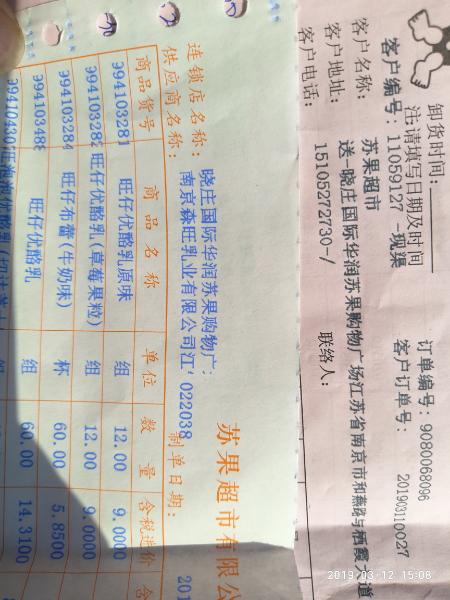 卸货时间:
注:请填写日期及时间
客户编号: 11059127 -现渠
订单编号: 9080068096
客户名称: 苏果超市
客户订单号: 201903110027
客户地址: 送-晓庄国际华润苏果购物广场江苏省南京市和燕路与栖霞大道
客户电话: 15105272730-/
联络人:
苏果超市有限公
连锁店名称: 晓庄国际华润苏果购物广:
供应商名称: 南京森旺乳业有限公司江, 022038
制单日期: 201
商品货号 商品名称 单位 数量 含税进价 含
994103281 旺仔优酪乳原味 组 12.00 9.0000
994103282 旺仔优酪乳(草莓果粒) 组 12.00 9.0000
994103284 旺仔布蕾(牛奶味) 杯 60.00 5.8500
99410348 旺仔优酪乳 组 60.00 14.3100
2019-03-12 15:08